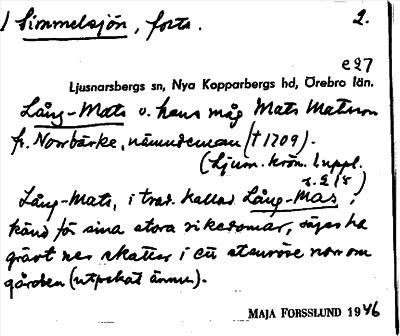 / Simmelsjön, forts. 2.
e27
Ljusnarsbergs sn, Nya Kopparbergs hd, Örebro län.
Lång-Mats o. hans måg Mats Matsson
fr. Norrbärke, nämndeman († 1709).
(Ljusn. krön. 1 uppl.
s. 215)
Lång-Mats, i trad. kallad Lång-Mas,
känd för sina stora rikedomar, säges ha
grävt ner skatter i ett stenröse norr om
gården (utpekat ännu).
MAJA FORSSLUND 1946